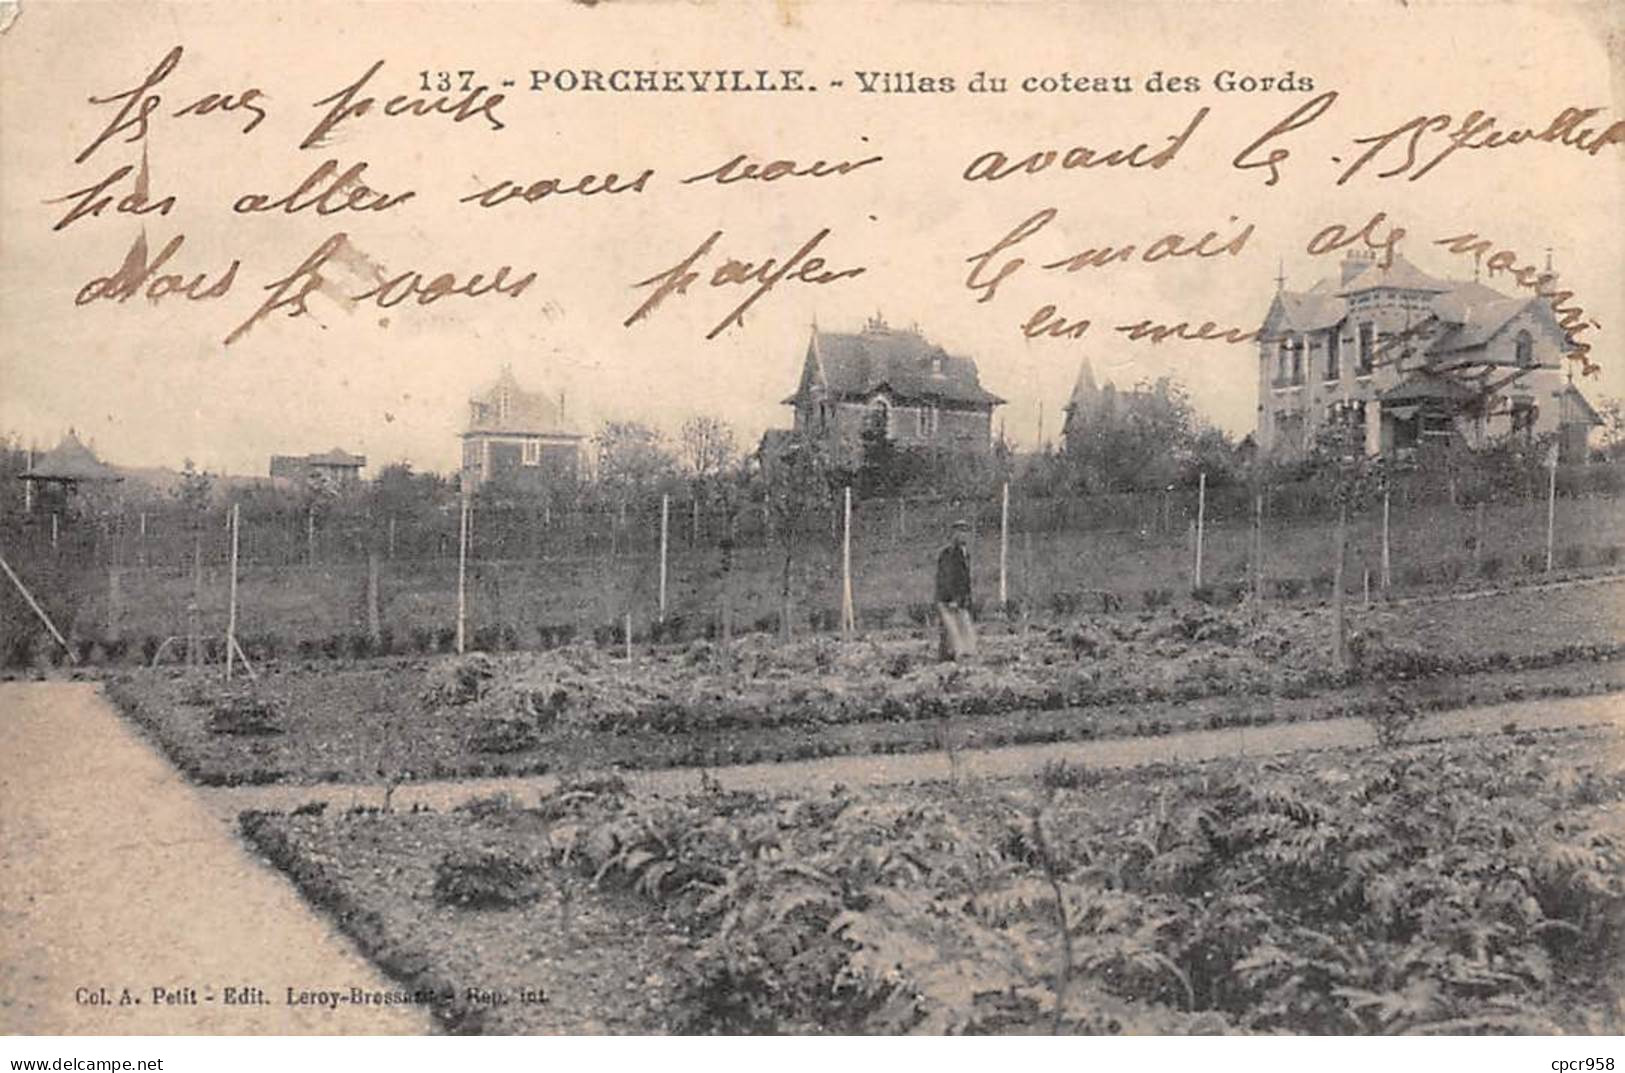 137. - PORCHEVILLE. - Villas du coteau des Gords
Je ne pense
pas aller vous voir avant le 15 Juillet
Alors je vous payer le mois de nourri
en men
Col. A. Petit - Edit. Leroy-Bressant - Rep. int.
www.delcampe.net
cpcr958